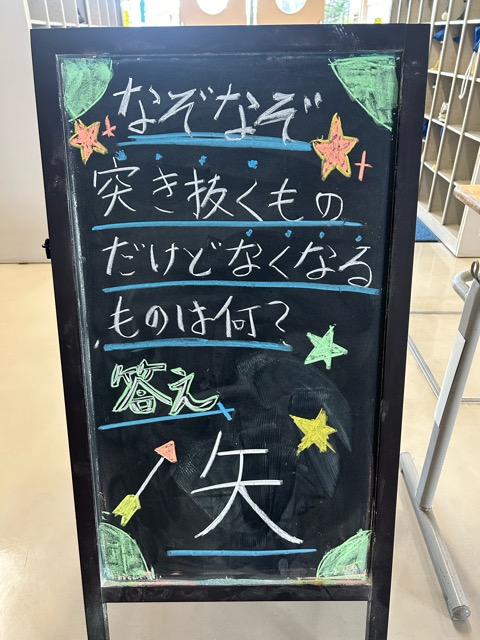 なぞなぞ
突き抜くもの
だけどなくなる
ものは何?
答え
矢